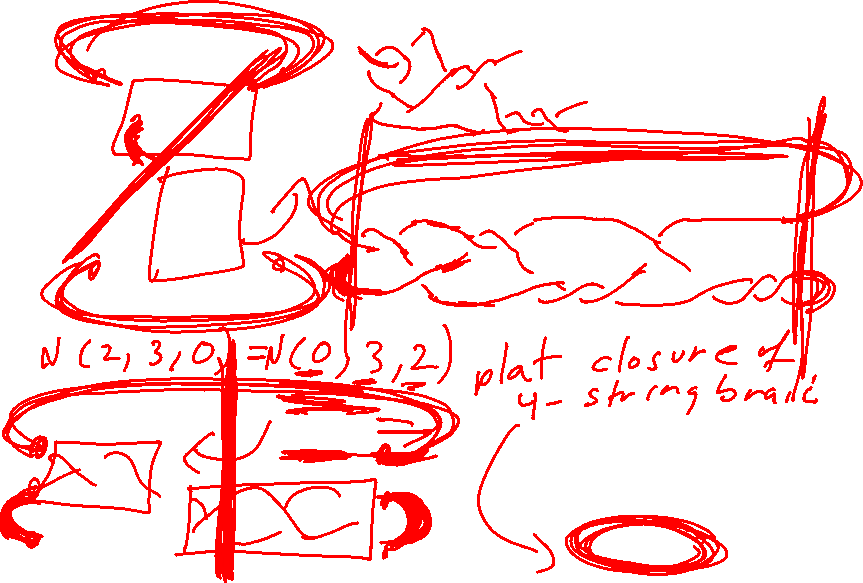 N(2,3,0)=N(0,3,2)
plat closure of
4-string braid